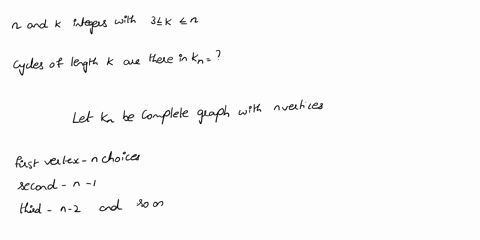 n and k integers with 3 ≤ k ≤ n
Cycles of length k are there in Kn = ?
Let Kn be Complete graph with n vertices
first vertex - n choices
second - n - 1
third - n - 2 and so on